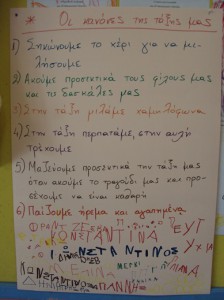 * Οι κανόνες της τάξης μας *
1) Σηκώνουμε το χέρι για να μι-
λήσουμε
2) Ακούμε προσεκτικά τους φίλους μας
και τις δασκάλες μας
3) Στην τάξη μιλάμε χαμηλόφωνα
4) Στην τάξη περπατάμε, στην αυλή
τρέχουμε
5) Μαζεύουμε προσεκτικά την τάξη μας
όταν ακούμε το τραγούδι μας και προ-
σέχουμε να είναι καθαρή
6) Παίζουμε ήρεμα και αγαπημένα
ΚΩΝΣΤΑΝΤΙΝΑ